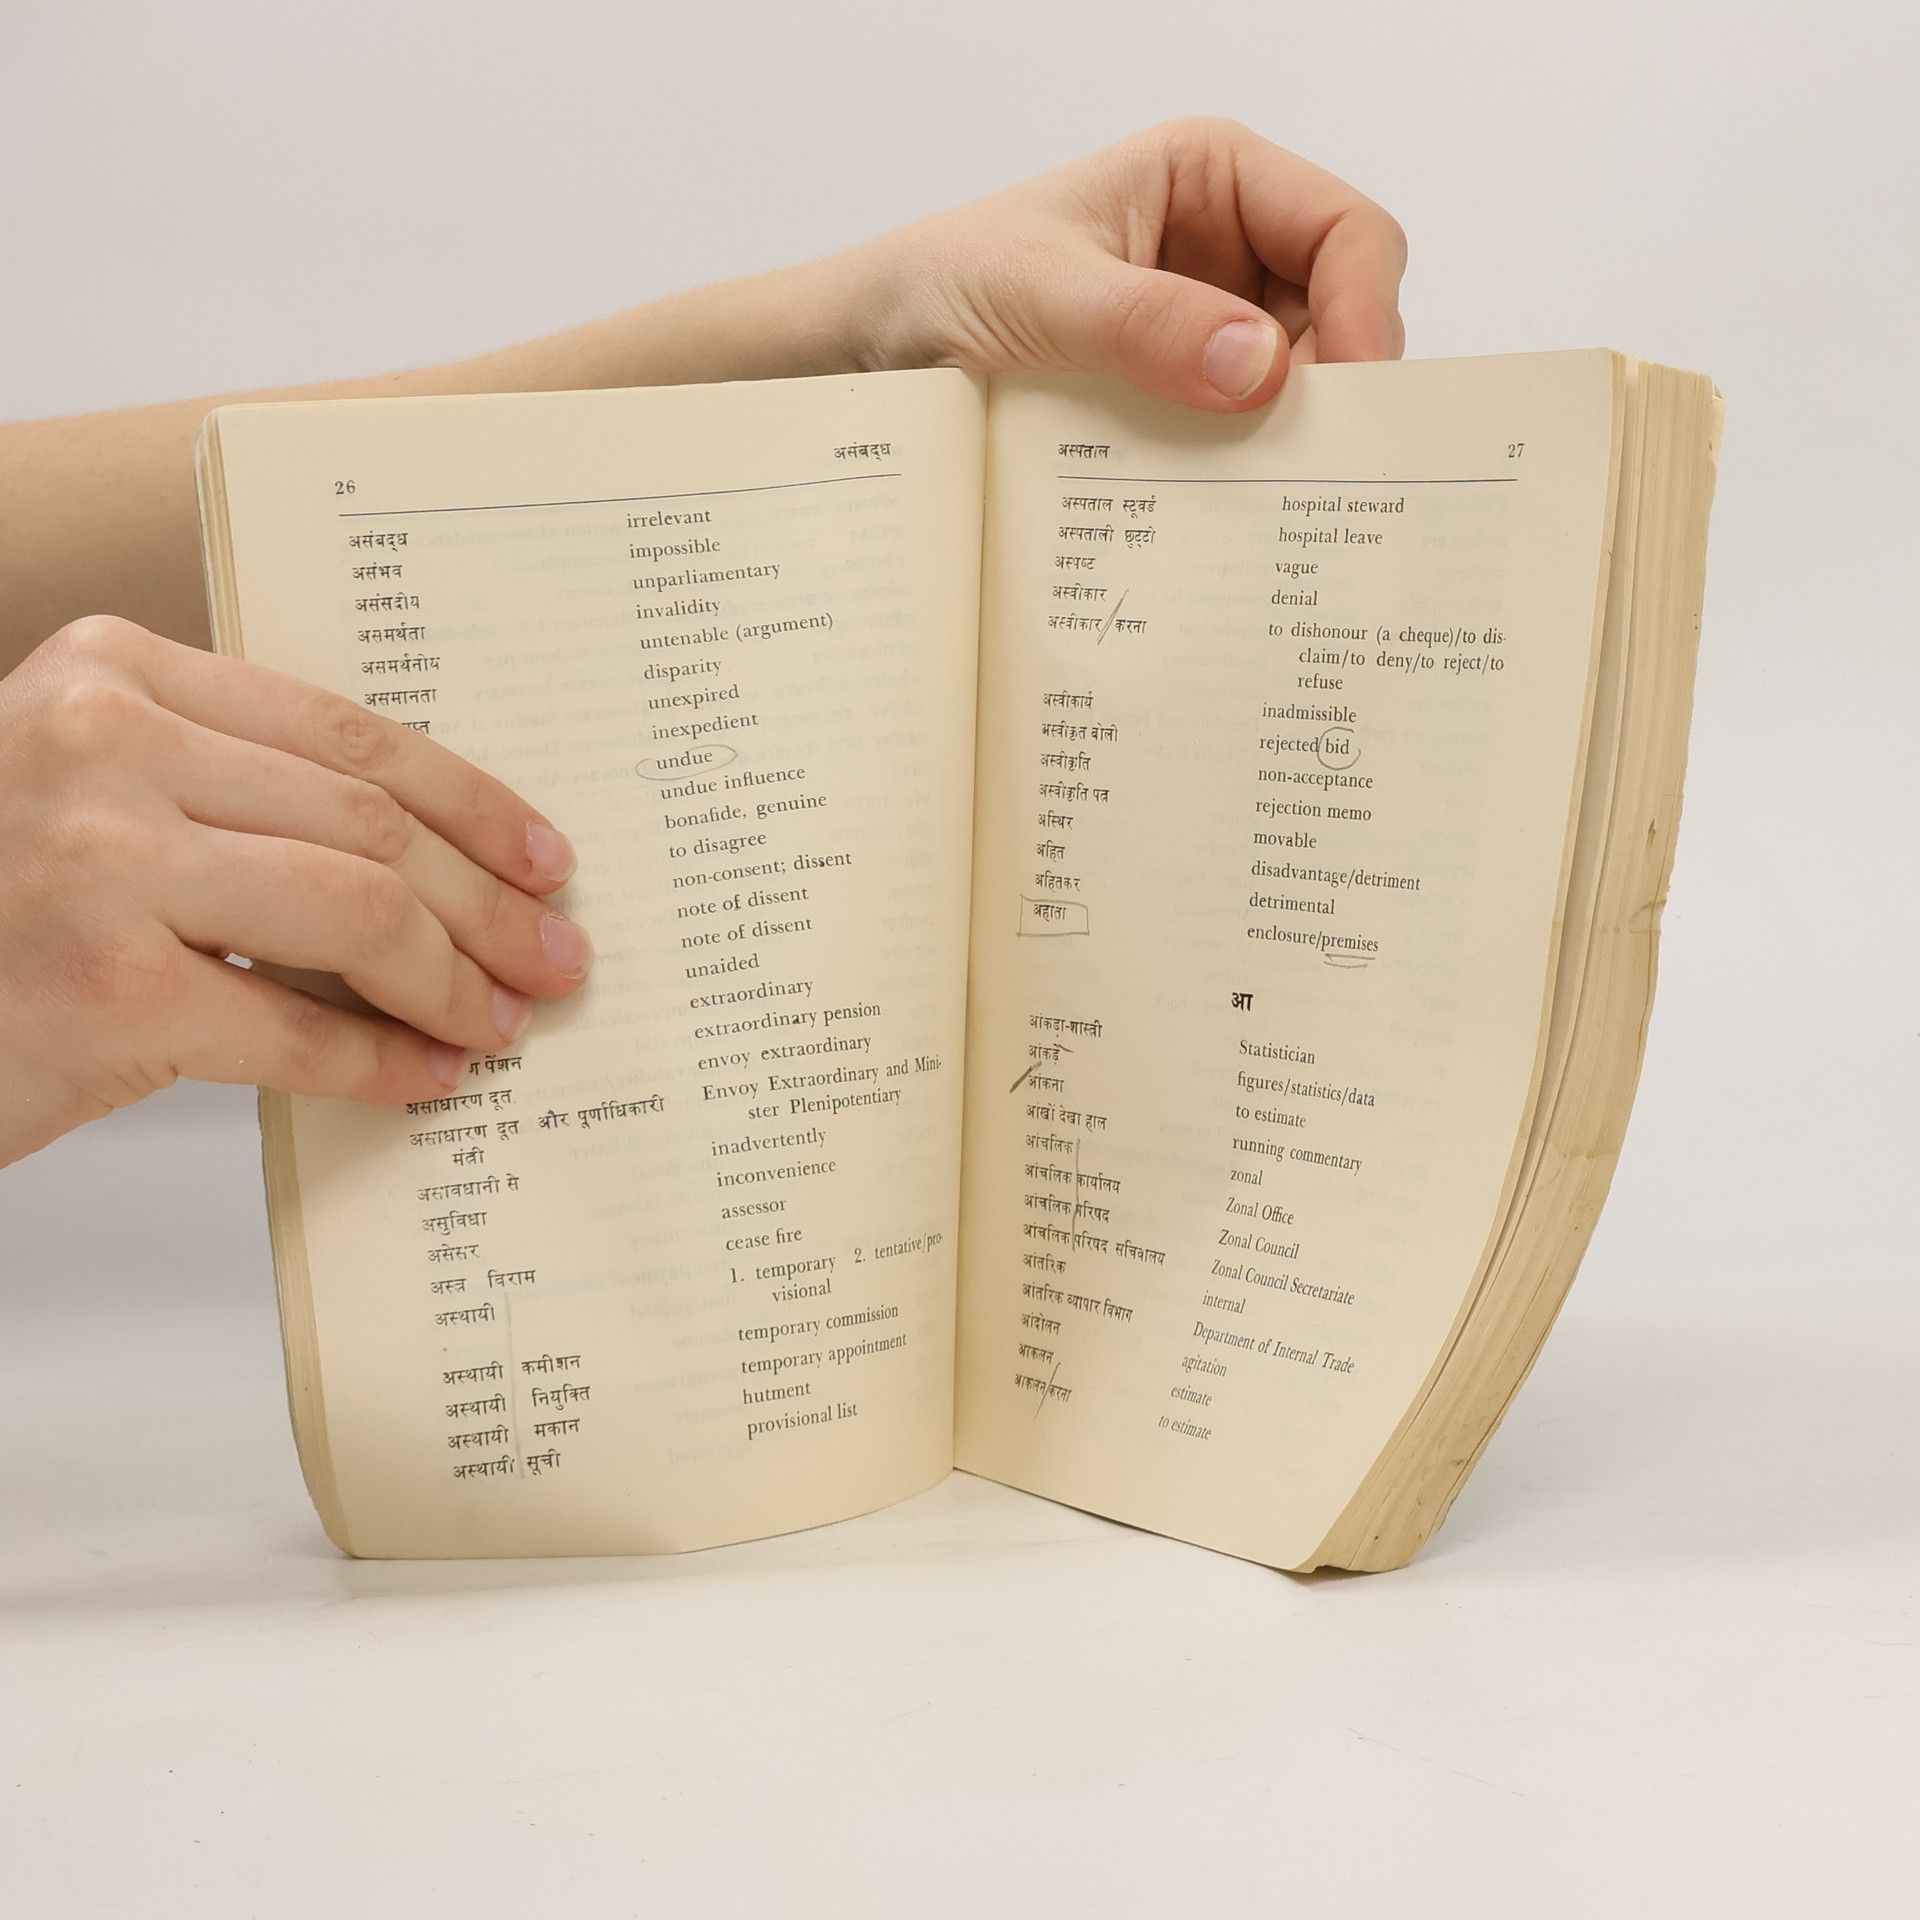 26
असंबद्ध
असंबद्ध irrelevant
असंभव impossible
असंसदीय unparliamentary
असमर्थता invalidity
असमर्थनीय untenable (argument)
असमानता disparity
unexpired
inexpedient
undue
undue influence
bonafide, genuine
to disagree
non-consent; dissent
note of dissent
note of dissent
unaided
extraordinary
पेंशन extraordinary pension
असाधारण दूत envoy extraordinary
असाधारण दूत और पूर्णाधिकारी Envoy Extraordinary and Mini-
मंत्री ster Plenipotentiary
असावधानी से inadvertently
असुविधा inconvenience
असेसर assessor
अस्त्र विराम cease fire
अस्थायी 1. temporary 2. tentative/pro-
visional
अस्थायी कमीशन temporary commission
अस्थायी नियुक्ति temporary appointment
अस्थायी मकान hutment
अस्थायी सूची provisional list
अस्पताल
27
अस्पताल स्टूवर्ड hospital steward
अस्पताली छुट्टी hospital leave
अस्पष्ट vague
अस्वीकार denial
अस्वीकार करना to dishonour (a cheque)/to dis-
claim/to deny/to reject/to
refuse
अस्वीकार्य inadmissible
अस्वीकृत बोली rejected bid
अस्वीकृति non-acceptance
अस्वीकृति पत्र rejection memo
अस्थिर movable
अहित disadvantage/detriment
अहितकर detrimental
अहाता enclosure/premises
आ
आंकड़ा-शास्त्री Statistician
आंकड़े figures/statistics/data
आंकना to estimate
आंखों देखा हाल running commentary
आंचलिक zonal
आंचलिक कार्यालय Zonal Office
आंचलिक परिषद Zonal Council
आंचलिक परिषद सचिवालय Zonal Council Secretariate
आंतरिक internal
आंतरिक व्यापार विभाग Department of Internal Trade
आंदोलन agitation
आकलन estimate
आकलन करना to estimate